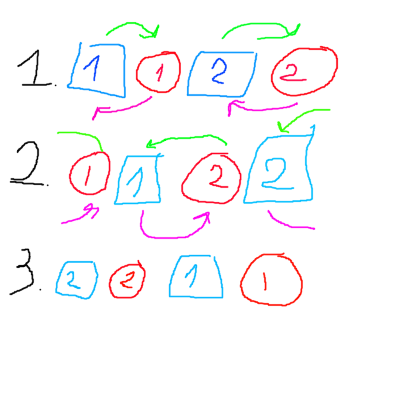 1. 1 1 2 2
2. 1 1 2 2
3. 2 2 1 1